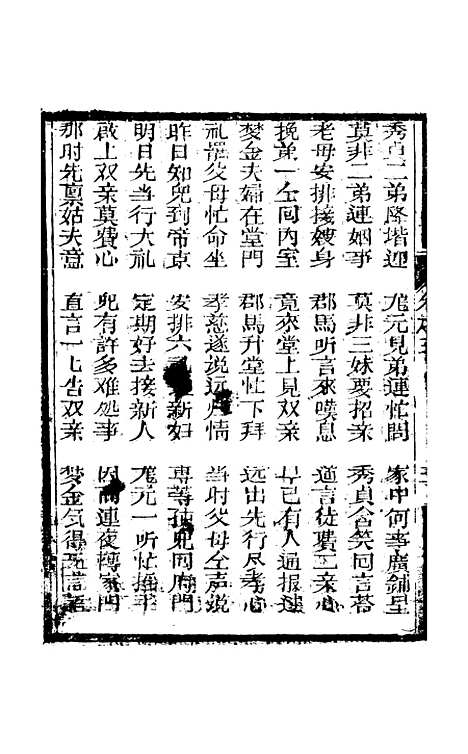 秀貞二弟降堦迎 龙元見弟連忙問 家中何事廣鋪呈
莫非二弟連姻事 莫非三妹要招亲 秀貞含笑囘言荅
老母安排接嫂身 郡馬听言來嘆息 道言徒費二亲心
挽弟一仝囘内室 竟來堂上見双亲 早已有人通报進
梦金夫婦在堂門 郡馬升堂忙下拜 远出先行尽孝心
礼罷父母忙命坐 孝慈遂説远归情 当时父母仝声说
昨日知兒到帝京 安排六礼 新妇 專等 兒囘府門
明日先当行大礼 定期好去接新人 龙元一听忙 手
啟上双亲莫費心 兒有許多难処事 因 連夜轉家門
那时先禀姑夫意 直言一七告双亲 梦金気得 言